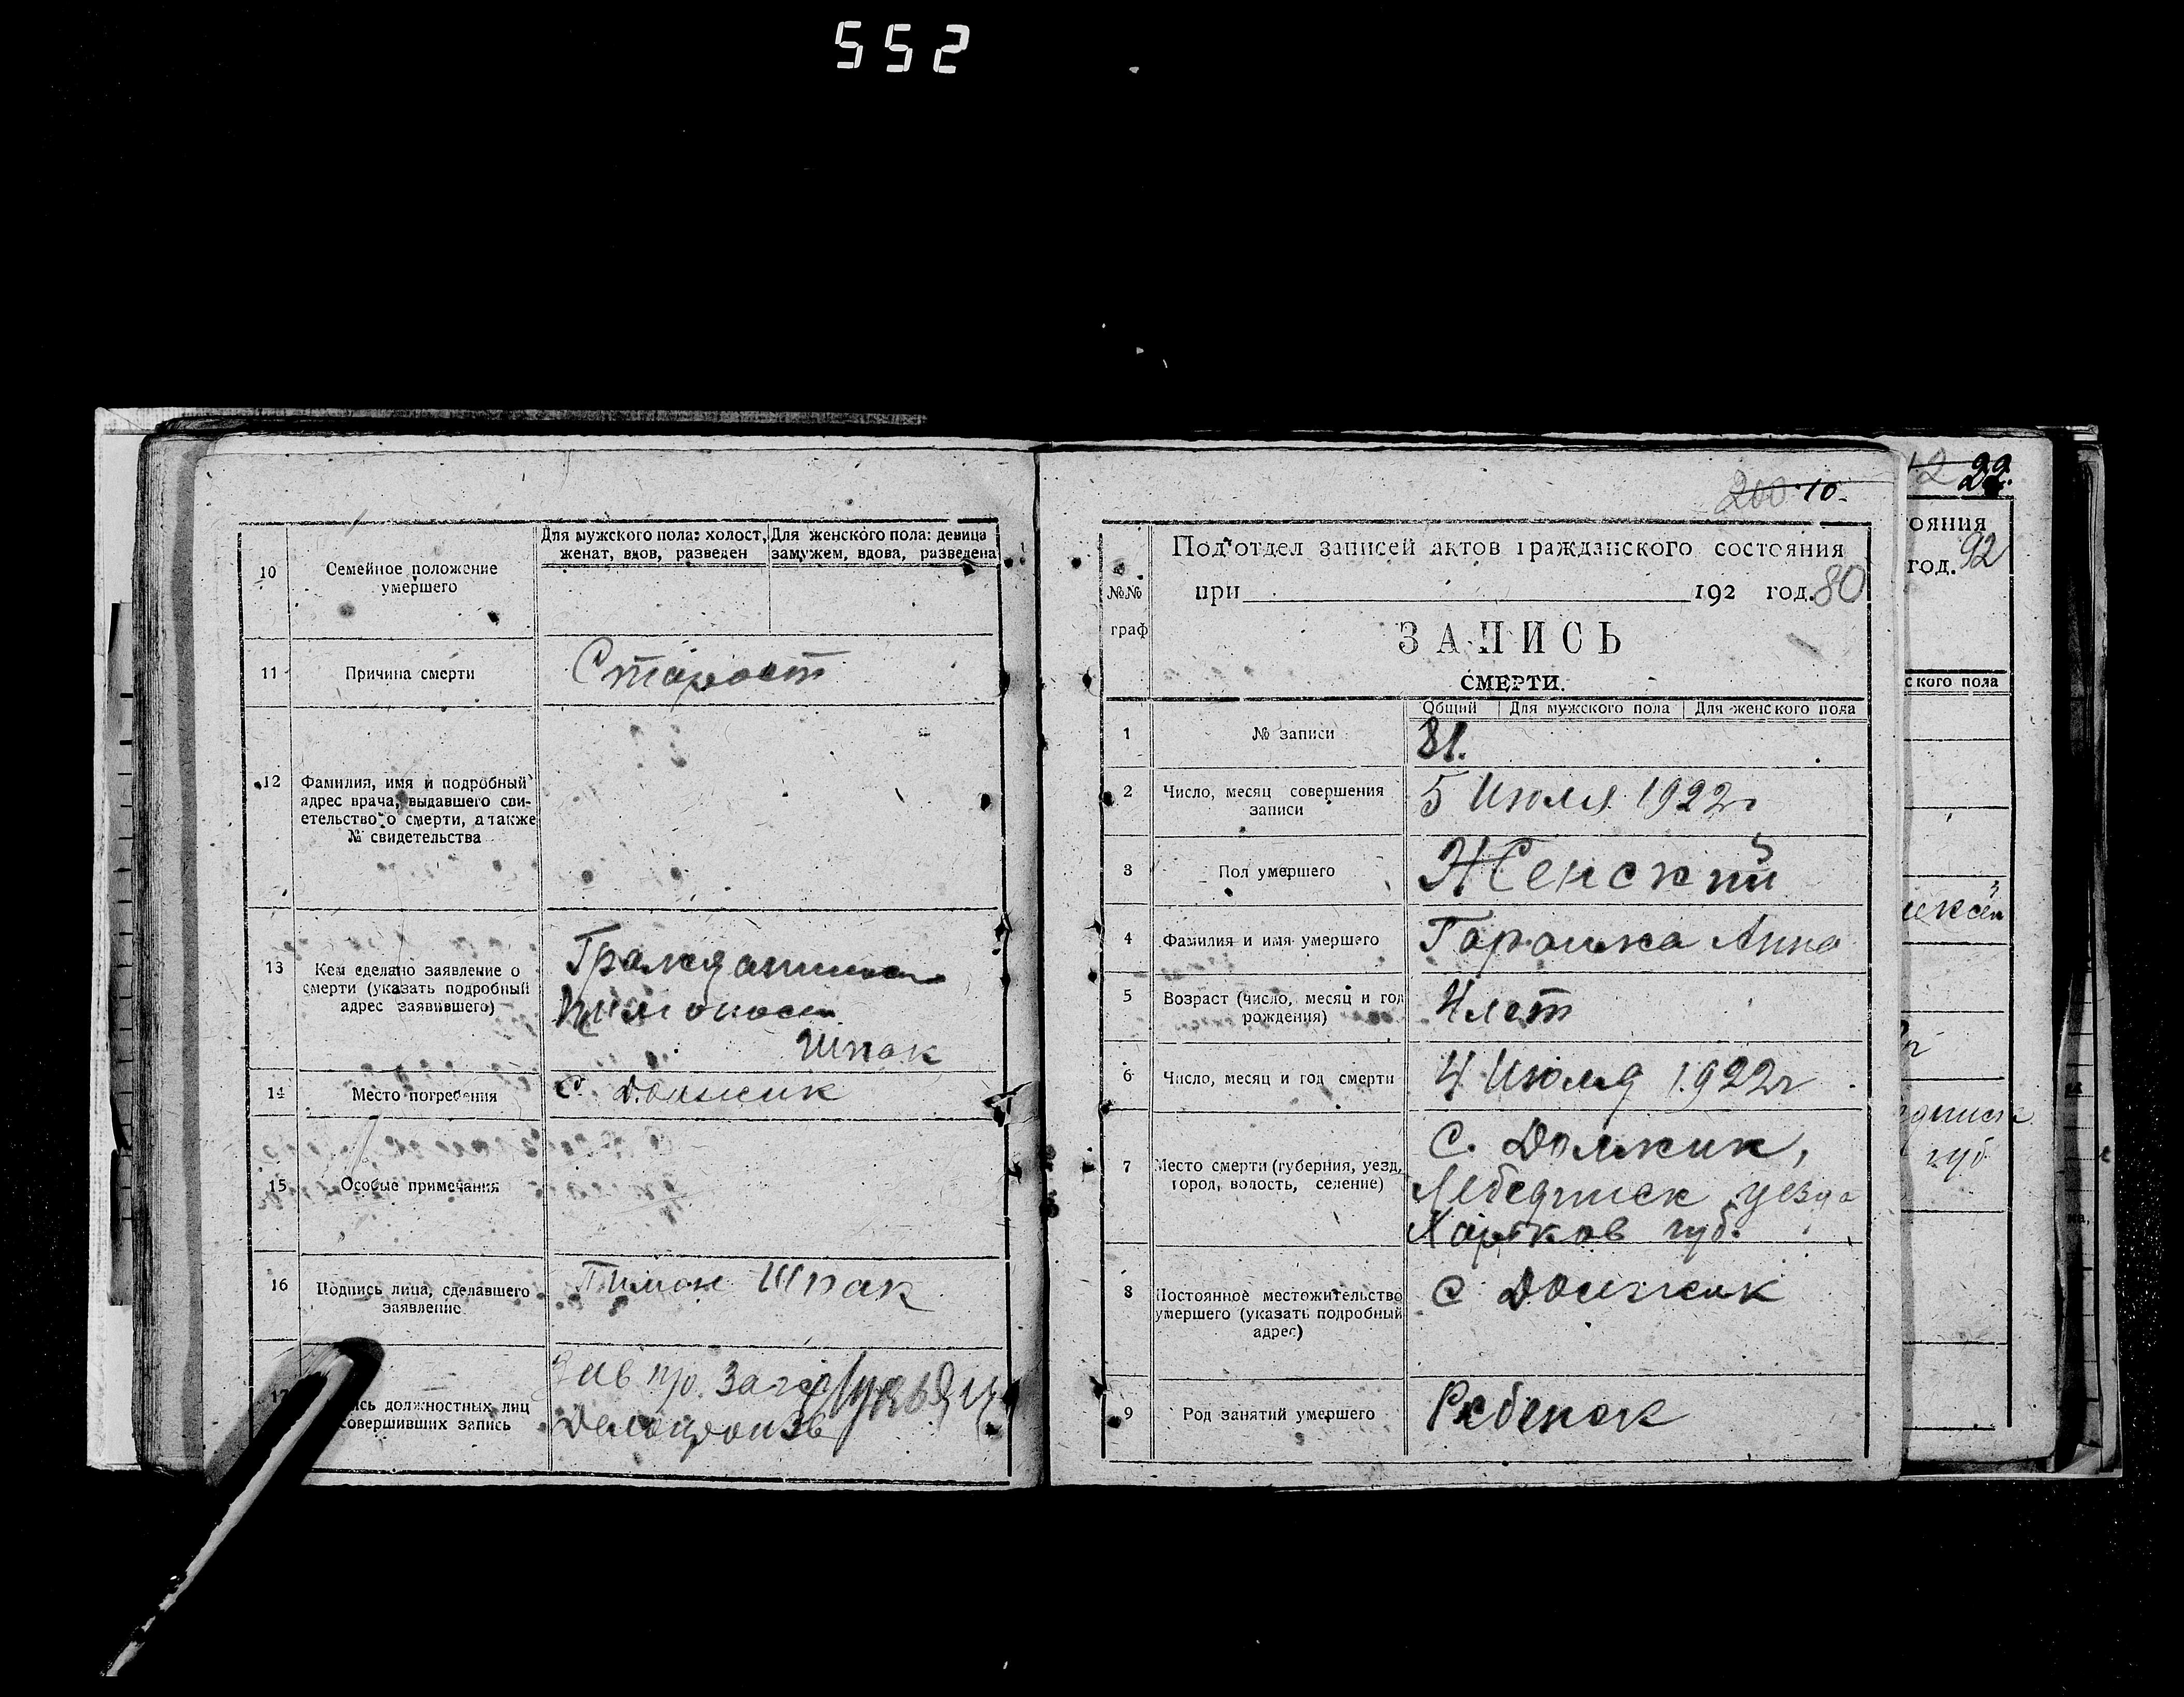 552
10
Семейное положение
умершего
Для мужского пола: холост,
женат, вдов, разведен
Для женского пола: девица
замужем, вдова, разведена
11
Причина смерти
Старост
12
Фамилия, имя и подробный
адрес врача, выдавшего сви-
етельство о смерти, а также
№ свидетельства
13
Кем сделано заявление о
смерти (указать подробный
адрес заявившего)
Шпак
14
Место погребения
С. Должик
15
Особые примечания
16
Подпись лица, сделавшего
заявление
Тимон Шпак
17
ись должностных лиц
совершивших запись
Зав п/о. Загс
Делопроизв
200 10
№№
граф
Под'отдел записей актов гражданского состояния
при 192 год. 80
ЗАПИСЬ
СМЕРТИ.
Общий
Для мужского пола
Для женского пола
1
№ записи
81.
2
Число, месяц совершения
записи
5 Июля 1922г
3
Пол умершего
Женский
4
Фамилия и имя умершего
Анна
5
Возраст (число, месяц и год
рождения)
4 лет
6
Число, месяц и год смерти
4 Июля 1922г
7
Место смерти (губерния, уезд,
город, волость, селение)
С. Должик,
Лебединск уезда
Харьков губ.
8
Постоянное местожительство
умершего (указать подробный
адрес)
С Должик
9
Род занятий умершего
Ребенок
22.
ояния
год. 92
ского пола
губ